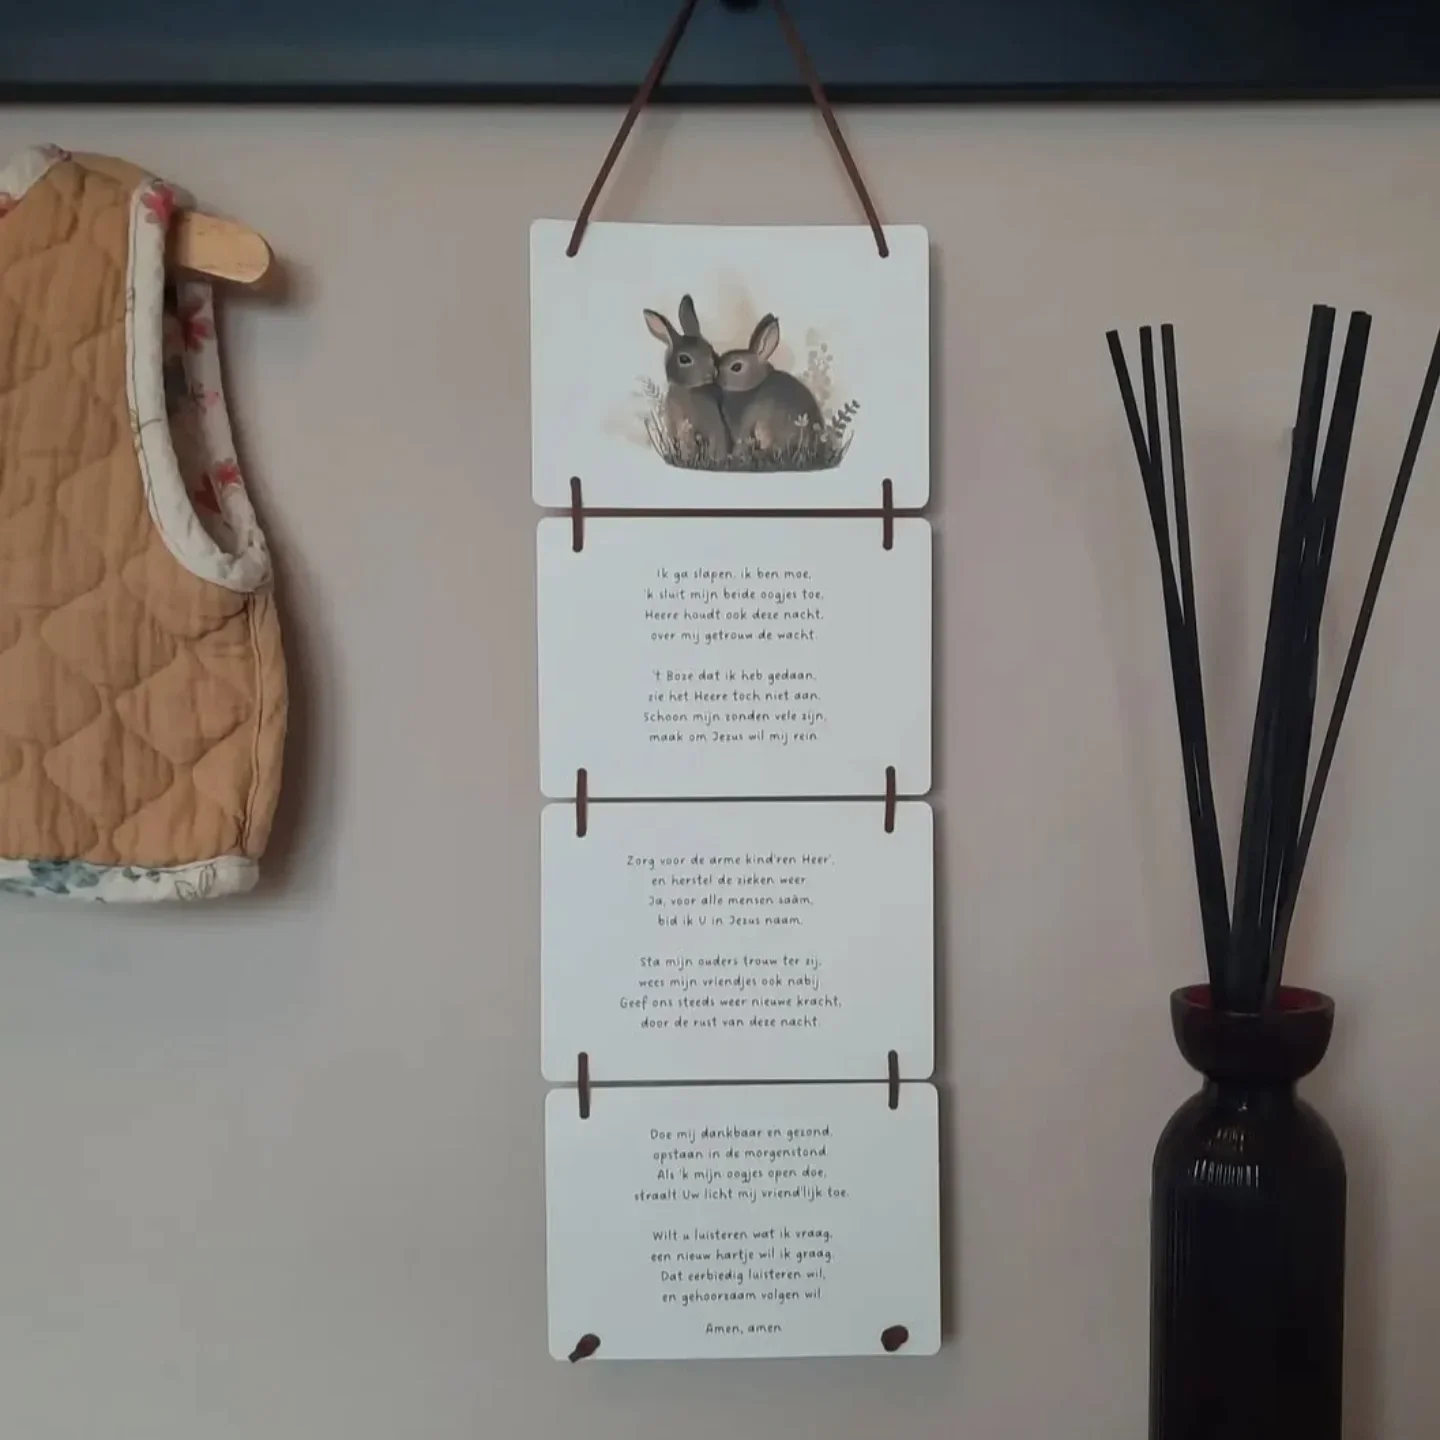 Ik ga slapen, ik ben moe,
'k sluit mijn beide oogjes toe,
Heere houdt ook deze nacht,
over mij getrouw de wacht.
't Boze dat ik heb gedaan,
zie het Heere toch niet aan.
Schoon mijn zonden vele zijn,
maak om Jezus wil mij rein.
Zorg voor de arme kind'ren Heer',
en herstel de zieken weer.
Ja, voor alle mensen saâm,
bid ik U in Jezus naam.
Sta mijn ouders trouw ter zij,
wees mijn vriendjes ook nabij.
Geef ons steeds weer nieuwe kracht,
door de rust van deze nacht.
Doe mij dankbaar en gezond,
opstaan in de morgenstond.
Als 'k mijn oogjes open doe,
straalt Uw licht mij vriend'lijk toe.
Wilt u luisteren wat ik vraag,
een nieuw hartje wil ik graag.
Dat eerbiedig luisteren wil,
en gehoorzaam volgen wil.
Amen, amen